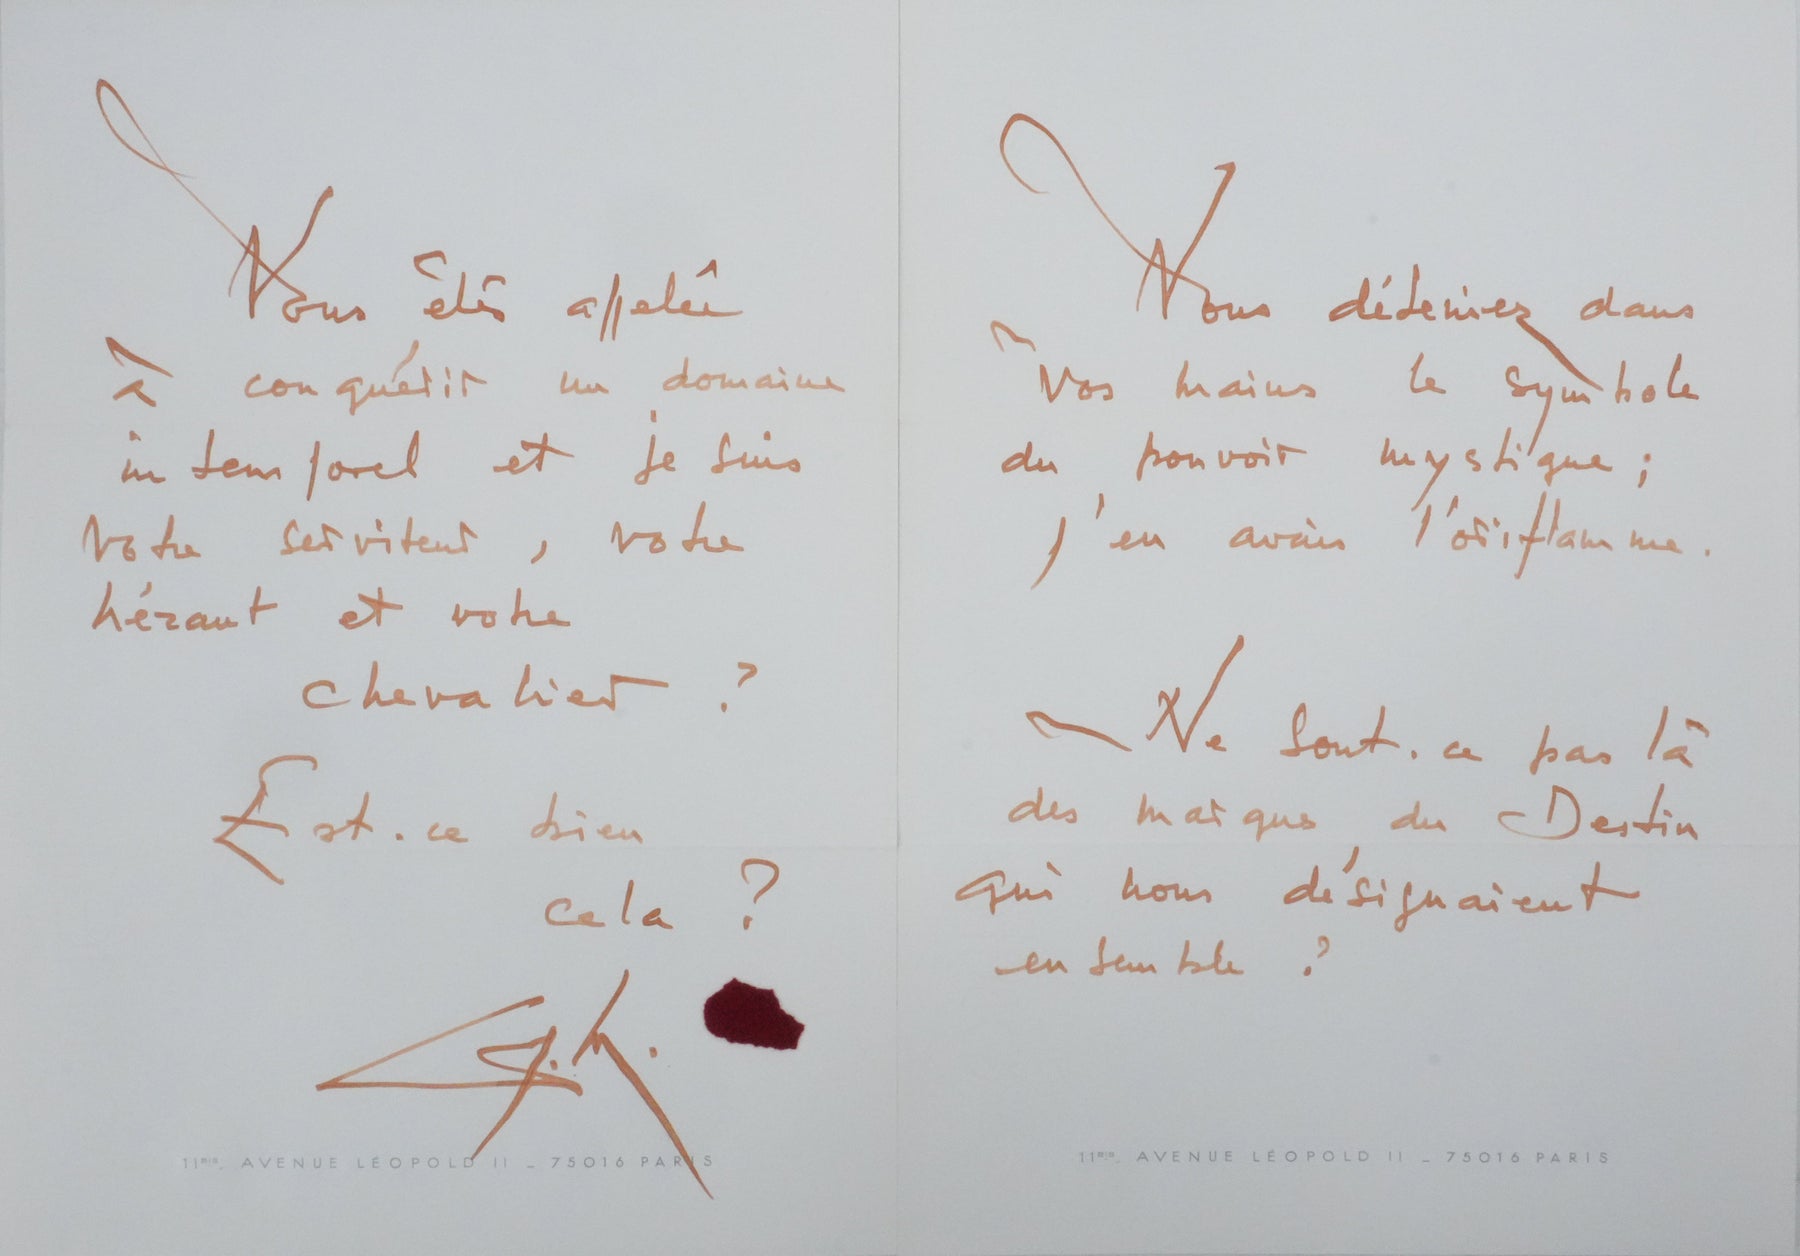 Vous êtes appelée
à conquérir un domaine
intemporel et je suis
votre serviteur, votre
héraut et votre
chevalier ?
Est-ce bien
cela ?
11BIS, AVENUE LÉOPOLD II _ 75016 PARIS
Vous déteniez dans
vos mains le symbole
du pouvoir mystique ;
j'en avais l'oriflamme.
Ne sont-ce pas là
des marques du Destin
qui nous désignaient
ensemble ?
11BIS, AVENUE LÉOPOLD II _ 75016 PARIS